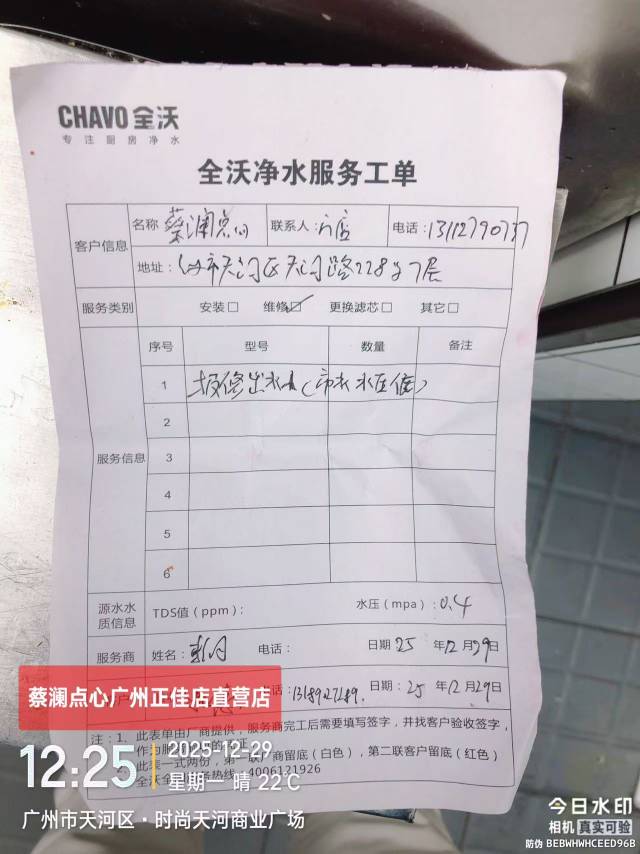 CHAVO 全沃
专注厨房净水
全沃净水服务工单
客户信息 名称 蔡澜点心 联系人: 门店 电话: 13112790737
地址: 天河区天河路228号7层
服务类别 安装□ 维修☑ 更换滤芯□ 其它□
服务信息 序号 型号 数量 备注
1 报修出水小(市水水压低)
2
3
4
5
6
源水水质信息 TDS值(ppm): 水压(mpa): 0.4
服务商 姓名: 电话: 日期 25 年12月29日
13189127189. 日期: 25 年12月29日
注: 1、此表单由厂商提供,服务商完工后需要填写签字,并找客户验收签字,
作为服
2、此表一式两份,第一联厂商留底(白色),第二联客户留底(红色)
全沃全 服务热线: 4006121926
蔡澜点心广州正佳店直营店
12:25 2025-12-29
星期一 晴 22℃
广州市天河区·时尚天河商业广场
今日水印
相机 真实可验
防伪 BEBWHWHCEED96B